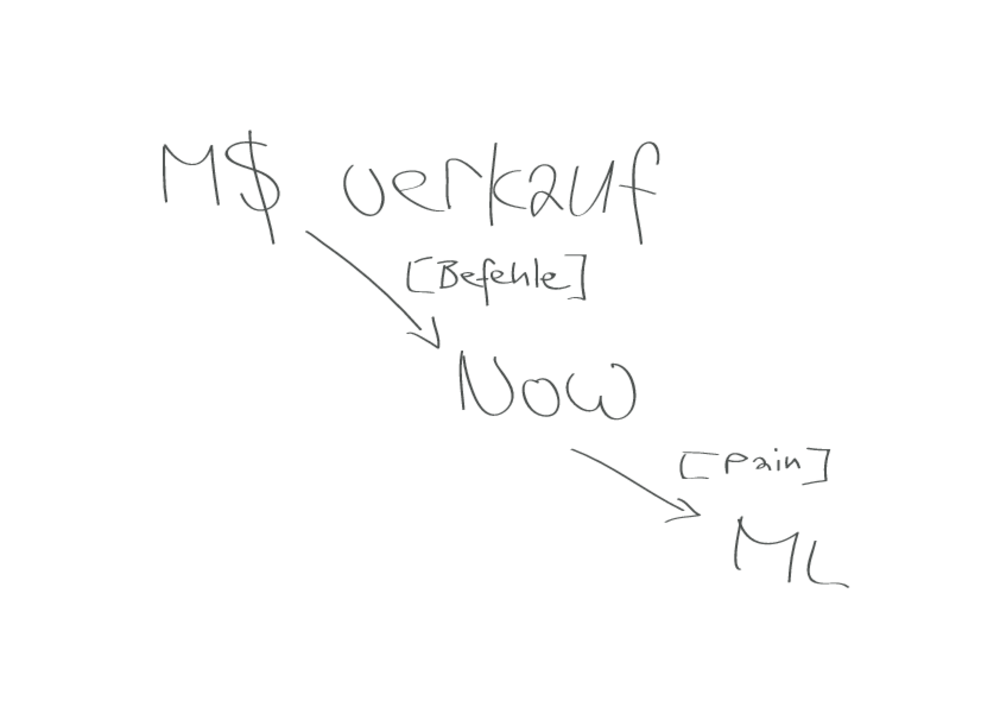 M$ verkauf
[Befehle]
Now
[Pain]
ML